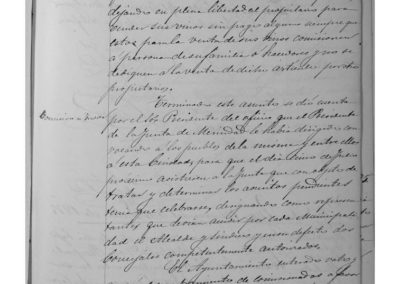 dejando en plena libertad al propietario para
vender sus vinos sin pago alguno siempre que
estos para la venta de sus vinos comisionen
á personas de su familia ó hacedores y no se
dediquen á la venta de dicho articulo por otro
propietario.
Terminado este asunto se dió cuenta
por el Sor. Presidente del oficio que el Presidente
de la Junta de Merindad le habia dirigido con-
vocando á los pueblos de la misma y entre ellos
á esta Ciudad, para que el dia cinco de
proximo asistieran á la Junta que con objeto de
tratar y determinar los asuntos pendientes
tenia que celebrarse, designando como represen-
tantes que debian acudir por cada Municipali-
dad el Alcalde y Sindico y en su defecto dos
Concejales competentemente autorizados.
El Ayuntamiento enterado